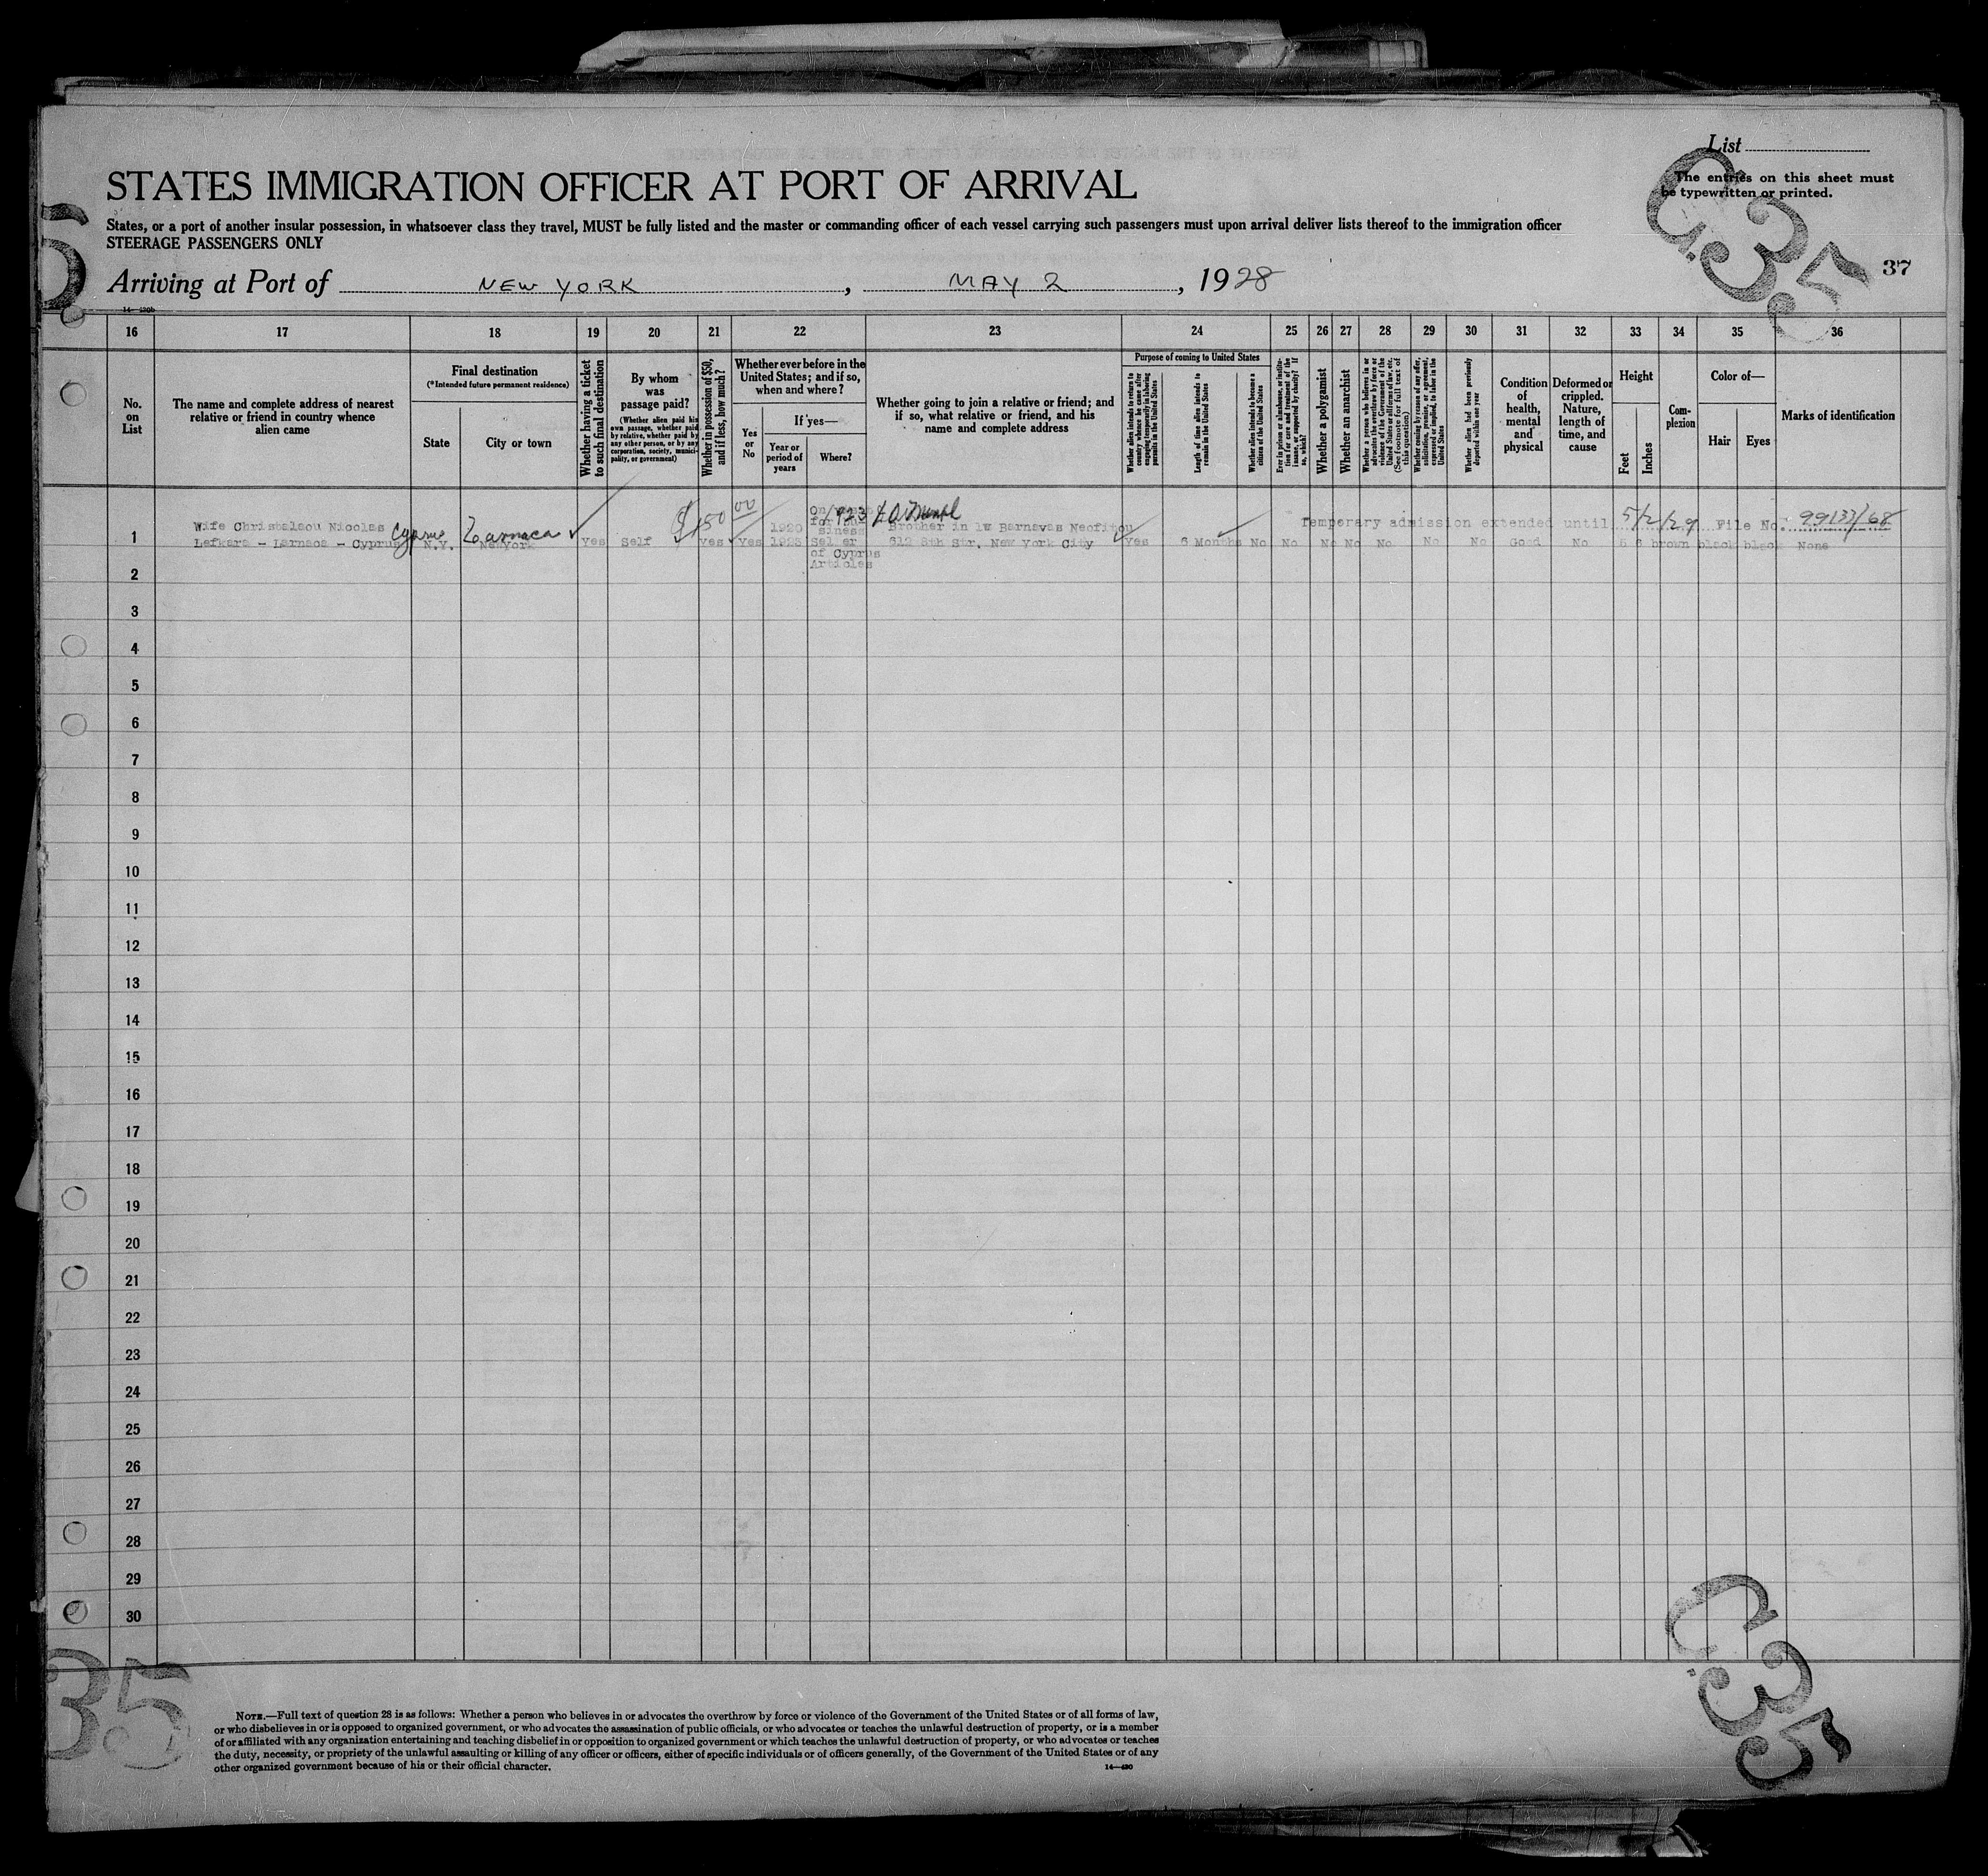 List
The entries on this sheet must
be typewritten or printed.
STATES IMMIGRATION OFFICER AT PORT OF ARRIVAL
States, or a port of another insular possession, in whatsoever class they travel, MUST be fully listed and the master or commanding officer of each vessel carrying such passengers must upon arrival deliver lists thereof to the immigration officer
STEERAGE PASSENGERS ONLY
Arriving at Port of NEW YORK, MAY 2, 1928
37
35
C35
14—430b
16 17 18 19 20 21 22 23 24 25 26 27 28 29 30 31 32 33 34 35 36
No.
on
List
The name and complete address of nearest
relative or friend in country whence
alien came
Final destination
(*Intended future permanent residence)
State
City or town
Whether having a ticket
to such final destination
By whom
was
passage paid?
(Whether alien paid his
own passage, whether paid
by relative, whether paid by
any other person, or by any
corporation, society, munici-
pality, or government)
Whether in possession of $50,
and if less, how much?
Whether ever before in the
United States; and if so,
when and where?
Yes
or
No
If yes—
Year or
period of
years
Where?
Whether going to join a relative or friend; and
if so, what relative or friend, and his
name and complete address
Purpose of coming to United States
Whether alien intends to return to
country whence he came after
engaging temporarily in laboring
pursuits in the United States
Length of time alien intends to
remain in the United States
Whether alien intends to become a
citizen of the United States
Ever in prison or almshouse, or institu-
tion for care and treatment of the
insane, or supported by charity? If
so, which?
Whether a polygamist
Whether an anarchist
Whether a person who believes in or
advocates the overthrow by force or
violence of the Government of the
United States or all forms of law, etc.
(See footnote for full text of
this question)
Whether coming by reason of any offer,
solicitation, promise, or agreement,
expressed or implied, to labor in the
United States
Whether alien had been previously
deported within one year
Condition
of
health,
mental
and
physical
Deformed or
crippled.
Nature,
length of
time, and
cause
Height
Feet
Inches
Com-
plexion
Color of—
Hair
Eyes
Marks of identification
$150 00 1923
Wife Christalaou Nicolas Cyprus Larnaca 1920 Brother in lw Barnavas Neofitou Temporary admission extended until 5/2/29 File No. 99133/68
1 Lefkara - Larnaca - Cyprus N.Y. NewYork Yes Self Yes Yes 1923 612 8th Str. New York City Yes 6 Months No No No No No No No Good No 5 6 brown black black None
of Cyprus
Articles
2
3
4
5
6
7
8
9
10
11
12
13
14
15
16
17
18
19
20
21
22
23
24
25
26
27
28
29
30
35
C35
NOTE.—Full text of question 28 is as follows: Whether a person who believes in or advocates the overthrow by force or violence of the Government of the United States or of all forms of law,
or who disbelieves in or is opposed to organized government, or who advocates the assassination of public officials, or who advocates or teaches the unlawful destruction of property, or is a member
of or affiliated with any organization entertaining and teaching disbelief in or opposition to organized government or which teaches the unlawful destruction of property, or who advocates or teaches
the duty, necessity, or propriety of the unlawful assaulting or killing of any officer or officers, either of specific individuals or of officers generally, of the Government of the United States or of any
other organized government because of his or their official character.
14—430